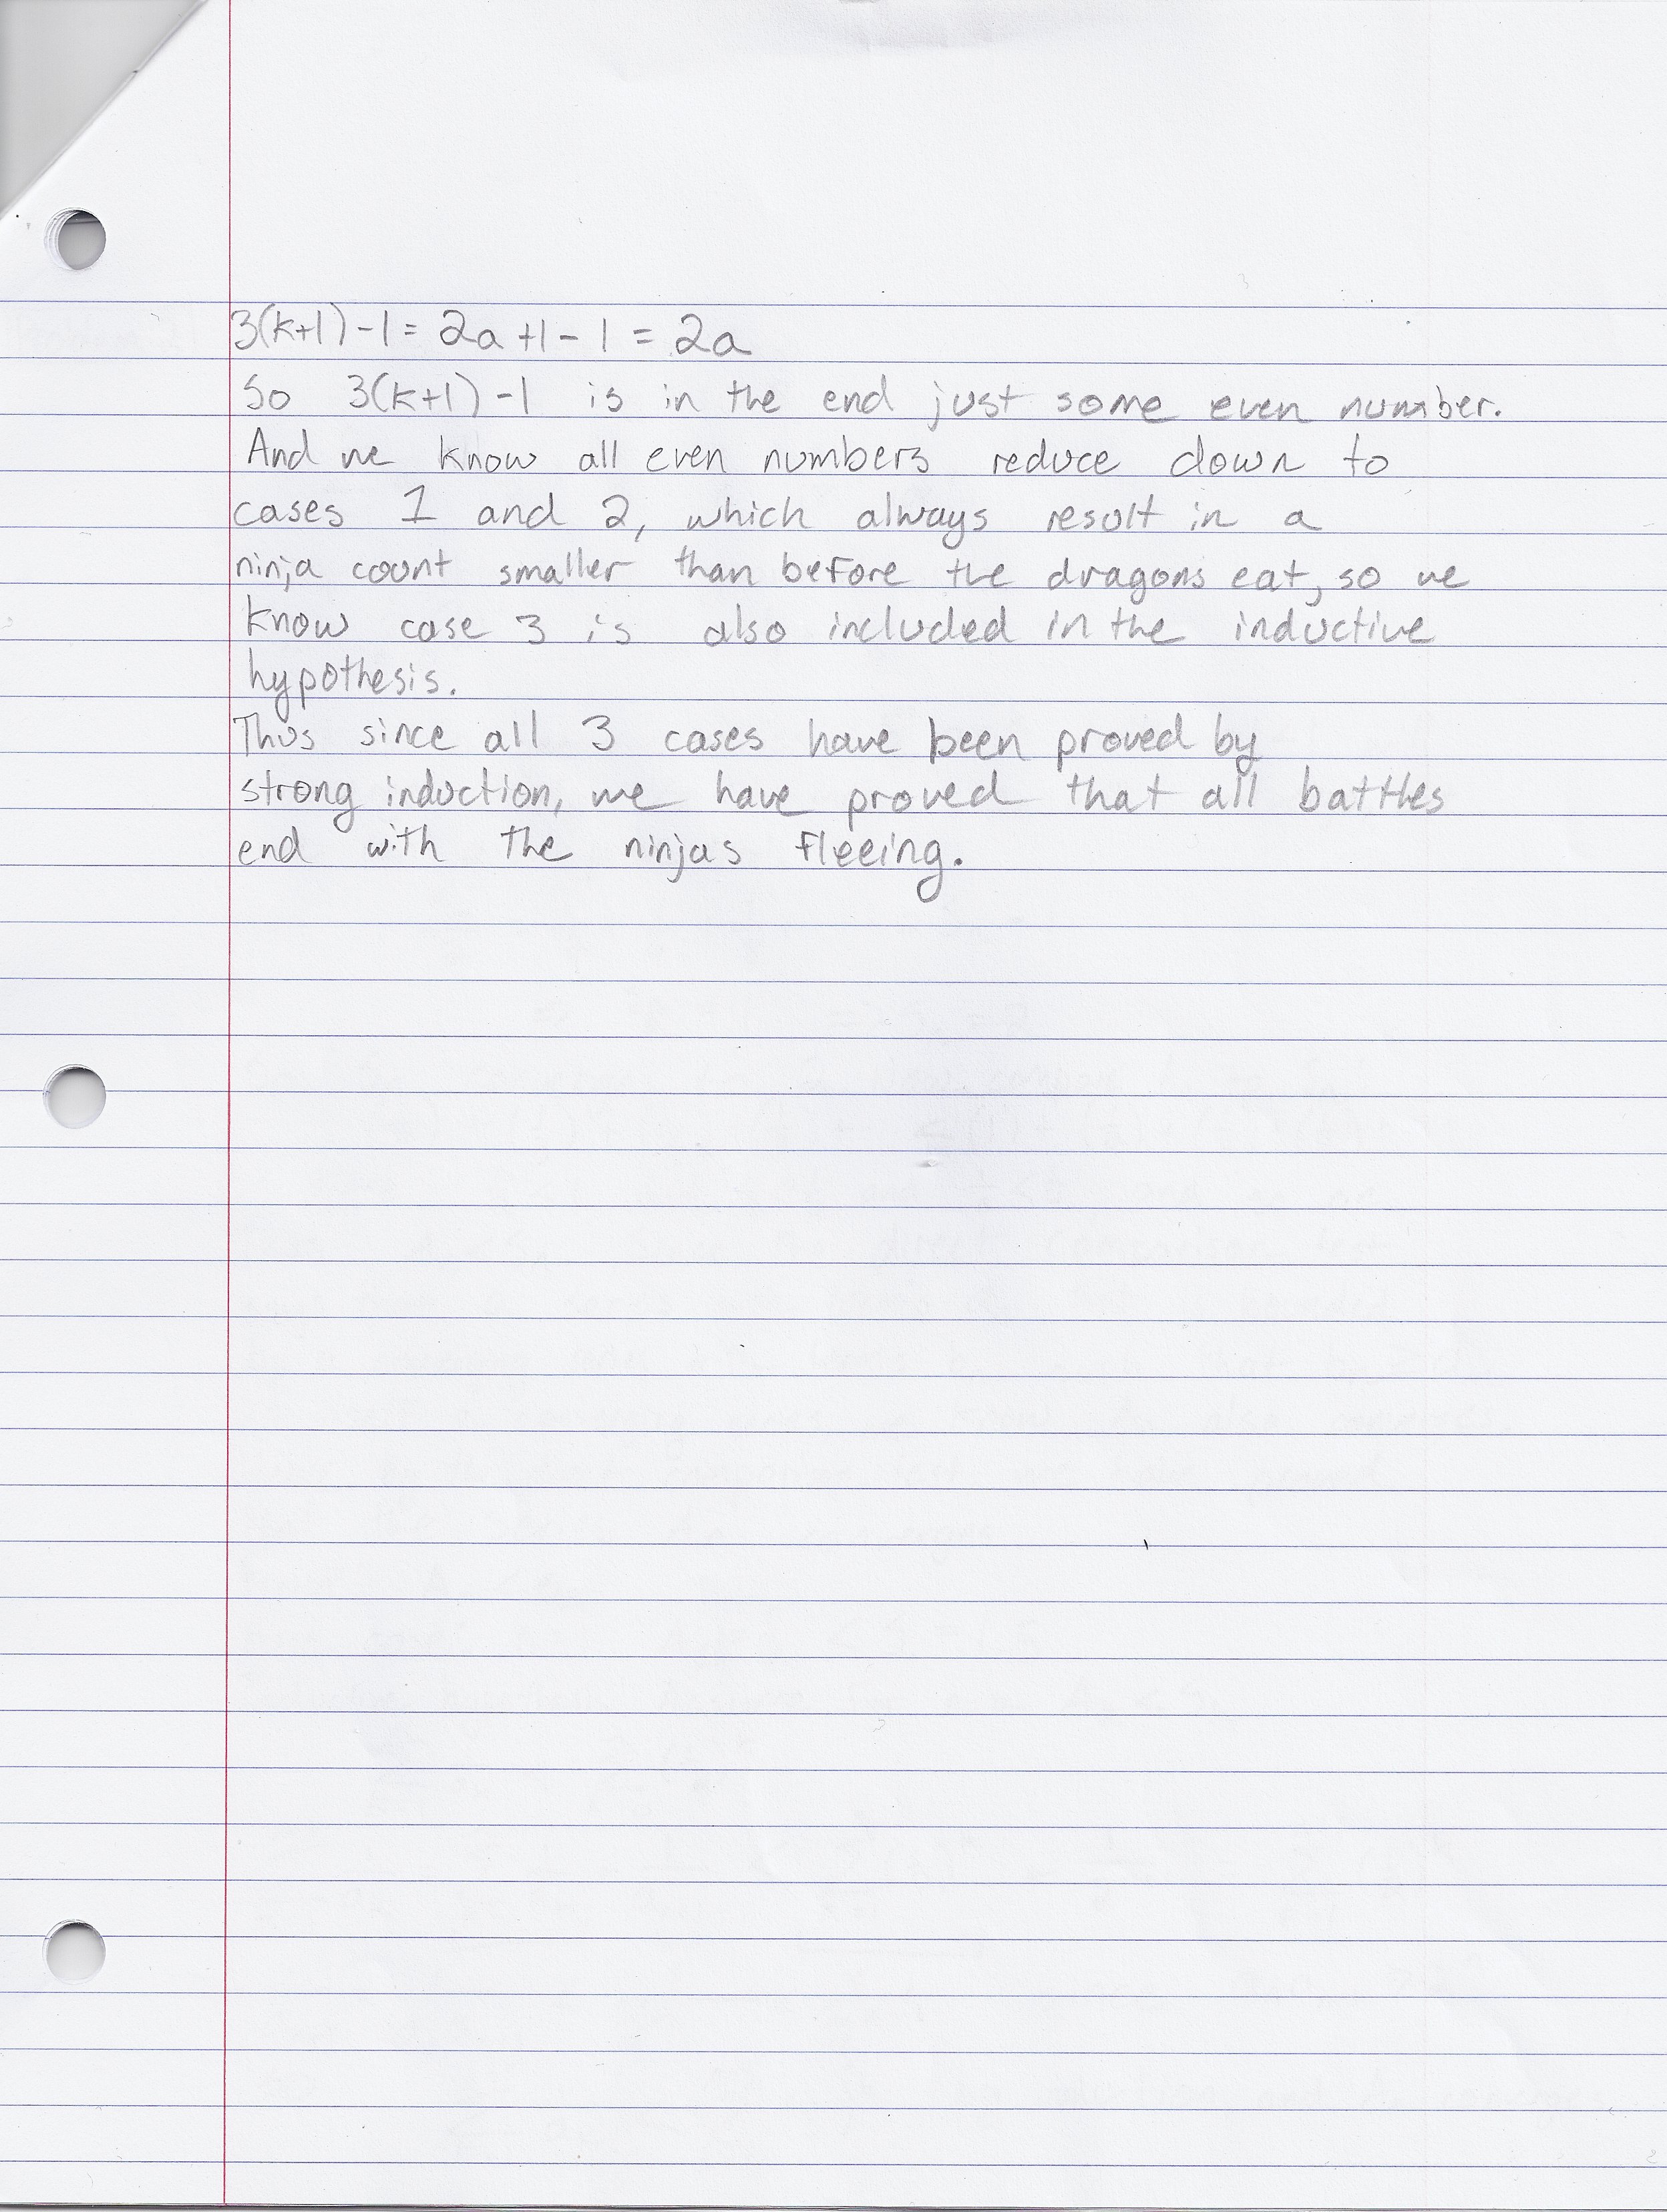 3(k+1)-1 = 2a+1-1 = 2a
So 3(k+1)-1 is in the end just some even number.
And we know all even numbers reduce down to
cases 1 and 2, which always result in a
ninja count smaller than before the dragons eat, so we
know case 3 is also included in the inductive
hypothesis.
Thus since all 3 cases have been proved by
strong induction, we have proved that all battles
end with the ninjas fleeing.